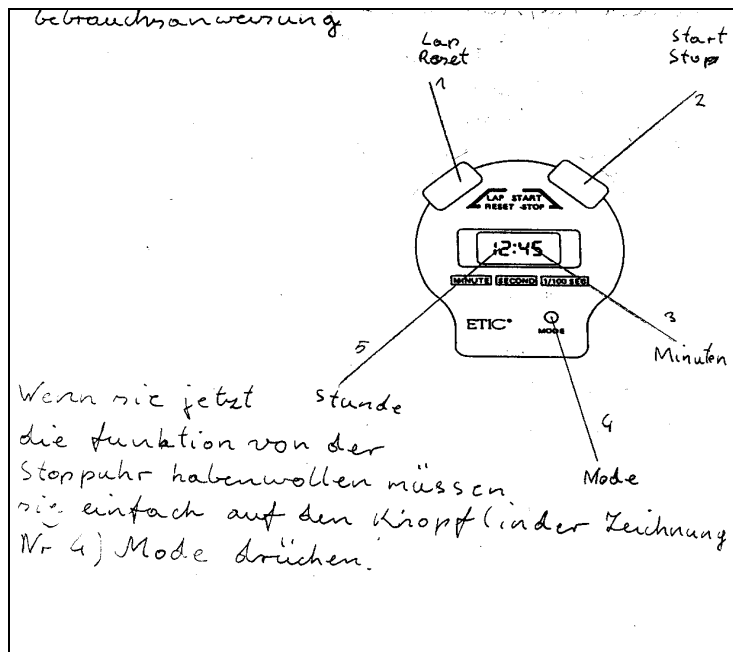 Gebrauchsanweisung
Lap
Reset
1
Start
Stop
2
LAP START
RESET STOP
12:45
MINUTE SECOND 1/100 SEC
ETIC
MODE
5
3
Minuten
Stunde
4
Mode
Wenn sie jetzt
die funktion von der
Stoppuhr habenwollen müssen
sie einfach auf den Knopf (in der Zeichnung
Nr 4) Mode drücken.